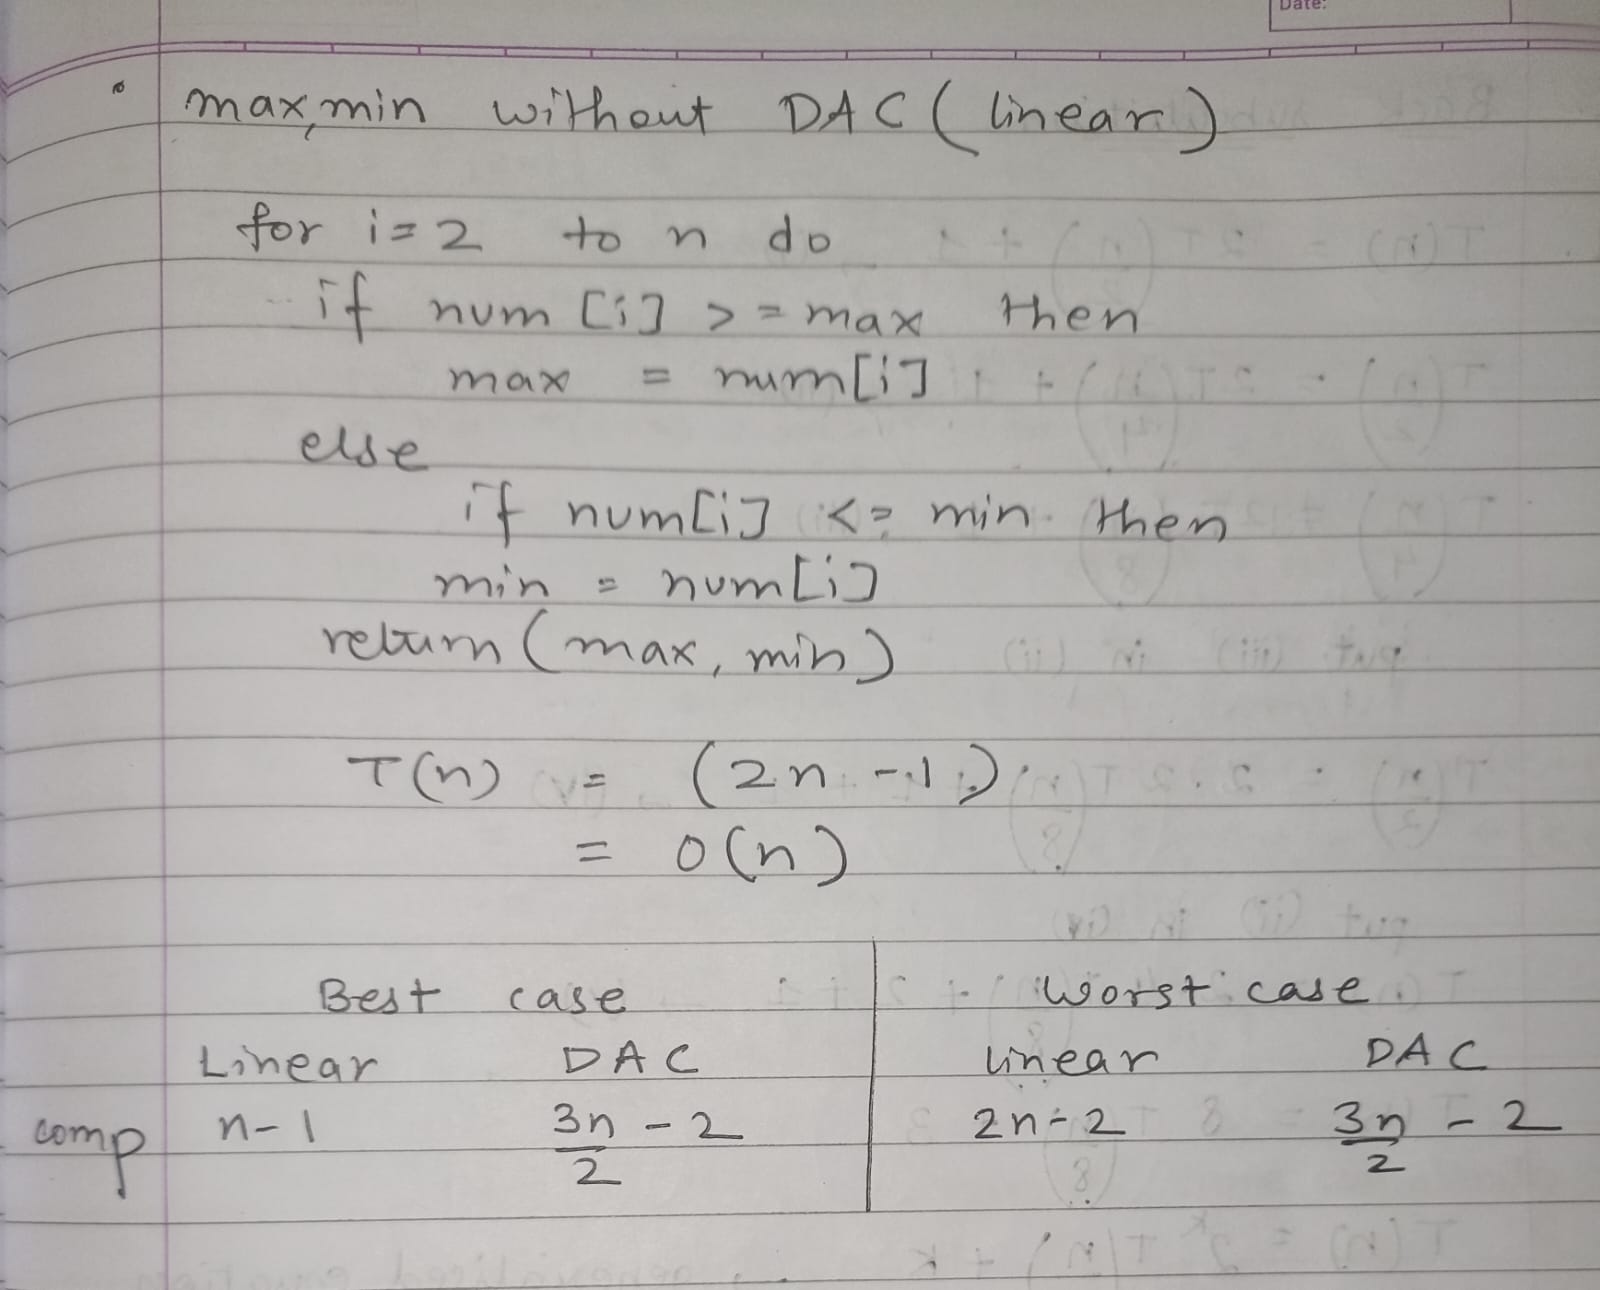 Date:
• max, min without DAC (linear)
for i=2 to n do
if num [i] >= max then
max = num[i]
else
if num[i] <= min then
min = num[i]
return (max, min)
T(n) = (2n - 1)
= O(n)
Best case Worst case
Linear DAC linear DAC
comp n-1 3n/2 - 2 2n-2 3n/2 - 2